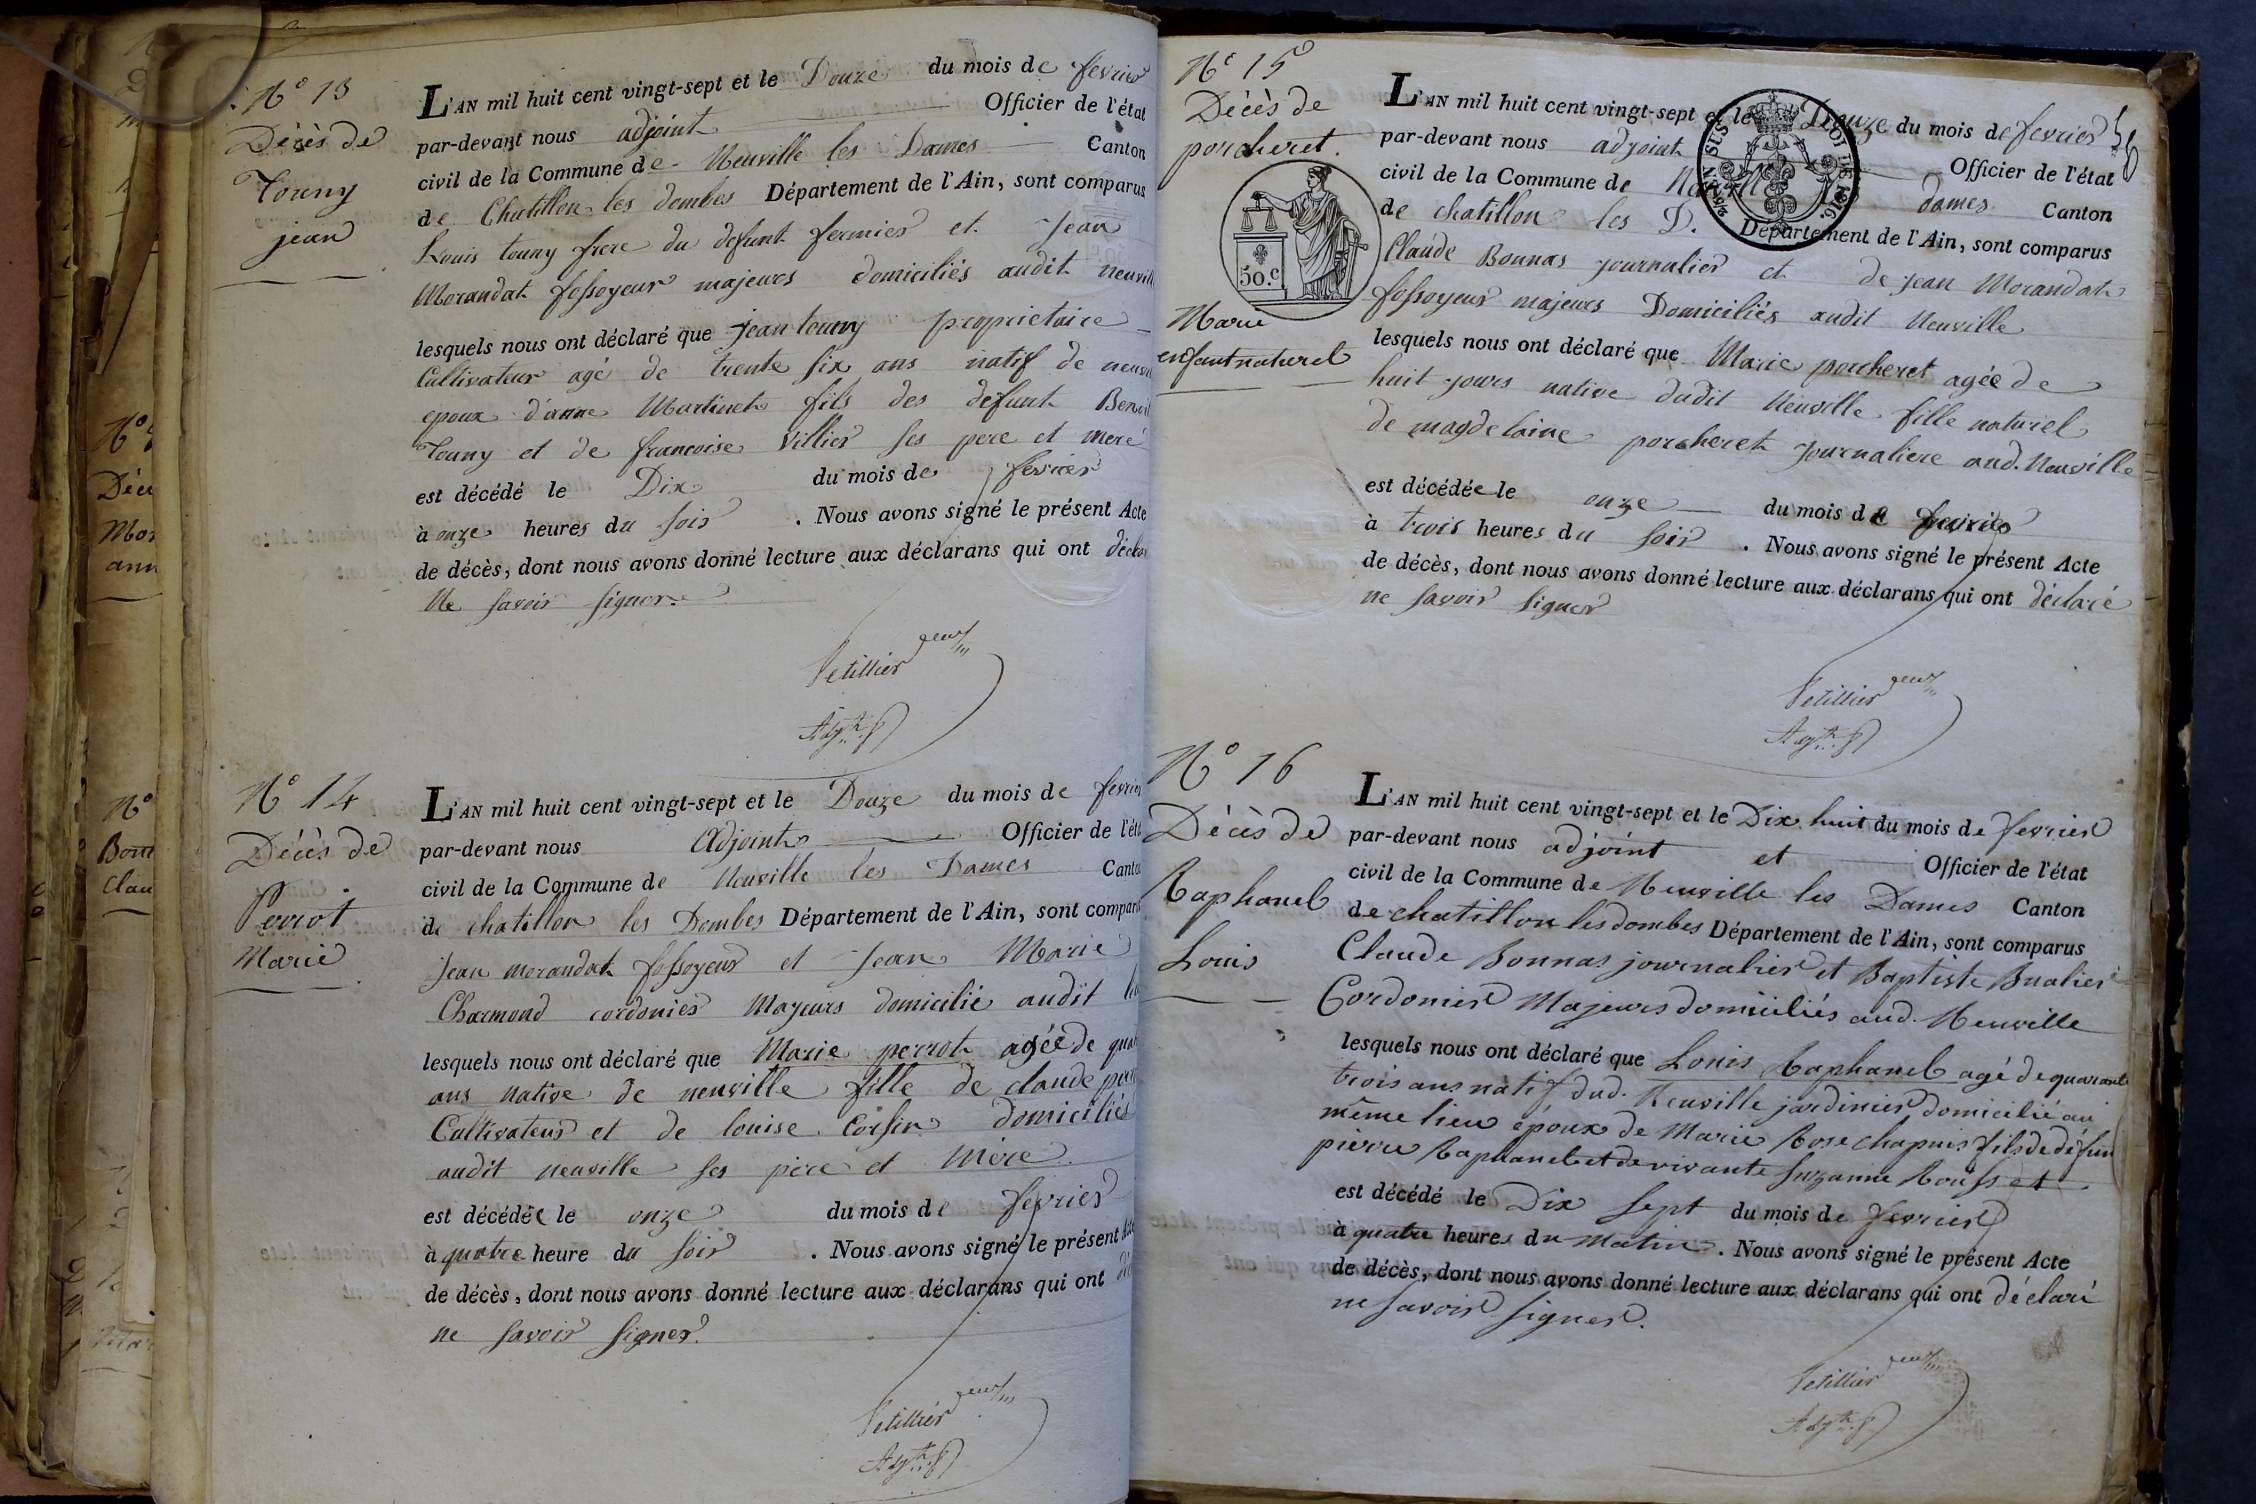 N° 13
Décès de
Touny
jean
L'AN mil huit cent vingt-sept et le Douze du mois de fevrier
par-devant nous adjoint Officier de l'état
civil de la Commune de Neuville les Dames Canton
de Chatillon les dombes Département de l'Ain, sont comparus
Louis touny frere du defunt fermier et Jean
Morandat fossoyeur majeurs domiciliés audit neuvill
lesquels nous ont déclaré que jean touny proprietaire
Cultivateur agé de trente six ans natif de neuv
epoux d'anne Martinet fils des défunt Benoit
Touny et de francoise Villier ses pere et meré
est décédé le Dix du mois de fevrier
à onze heures du soir . Nous avons signé le présent Acte
de décès, dont nous avons donné lecture aux déclarans qui ont déclar
Ne savoir signer.
Petillier
Adjt
N° 14
Décès de
Perrot
Marie
L'AN mil huit cent vingt-sept et le Douze du mois de fevrier
par-devant nous adjoint Officier de l'éta
civil de la Commune de Neuville les Dames Canto
de chatillon les Dombes Département de l'Ain, sont compar
Jean morandat fossoyeur et Jean Marie
Charmond cordonier Majeurs domicilié audit
lesquels nous ont déclaré que Marie perrot agée de quat
ans native de neuville fille de claude perr
Cultivateur et de louise Corsin domiciliés
audit neuville ses père et Mère
est décédée le onze du mois de fevrier
à quatre heure du soir . Nous avons signé le présent Acte
de décès, dont nous avons donné lecture aux déclarans qui ont
ne savoir signer.
Petillier
Adjt
N° 15
Décès de
porcheret.
50.c
Marie
enfant naturel
L'AN mil huit cent vingt-sept et le Douze du mois de fevrier
par-devant nous adjoint Officier de l'état
civil de la Commune de dames Canton
de chatillon les D. Département de l'Ain, sont comparus
Claude Bonnas journalier et de jean Morandat
fossoyeur majeurs Domiciliés audit Neuville
lesquels nous ont déclaré que Marie porcheret agée de
huit jours native dudit Neuville fille naturel
de magdelaine porcheret journaliere aud. Neuville
est décédée le onze du mois de fevrier
à trois heures du soir . Nous avons signé le présent Acte
de décès, dont nous avons donné lecture aux déclarans qui ont déclaré
ne savoir signer
Petillier
Adjt
N° 16
Décès de
Raphanel
Louis
L'AN mil huit cent vingt-sept et le Dix huit du mois de fevrier
par-devant nous adjoint et Officier de l'état
civil de la Commune de Neuville les Dames Canton
de chatillon les dombes Département de l'Ain, sont comparus
Claude Bonnas journalier et Baptiste
Cordonier Majeurs domiciliés aud. Neuville
lesquels nous ont déclaré que Louis Raphanel agé de quarante
trois ans natif dud. Neuville jardinier domicilié au
même lieu époux de Marie Rose chapuis fils de défun
pierre Raphanel et de vivante Suzanne Rousset.
est décédé le Dix sept du mois de fevrier
à quatre heures du matin . Nous avons signé le présent Acte
de décès, dont nous avons donné lecture aux déclarans qui ont déclaré
ne savoir signer.
Petillier
Adjt